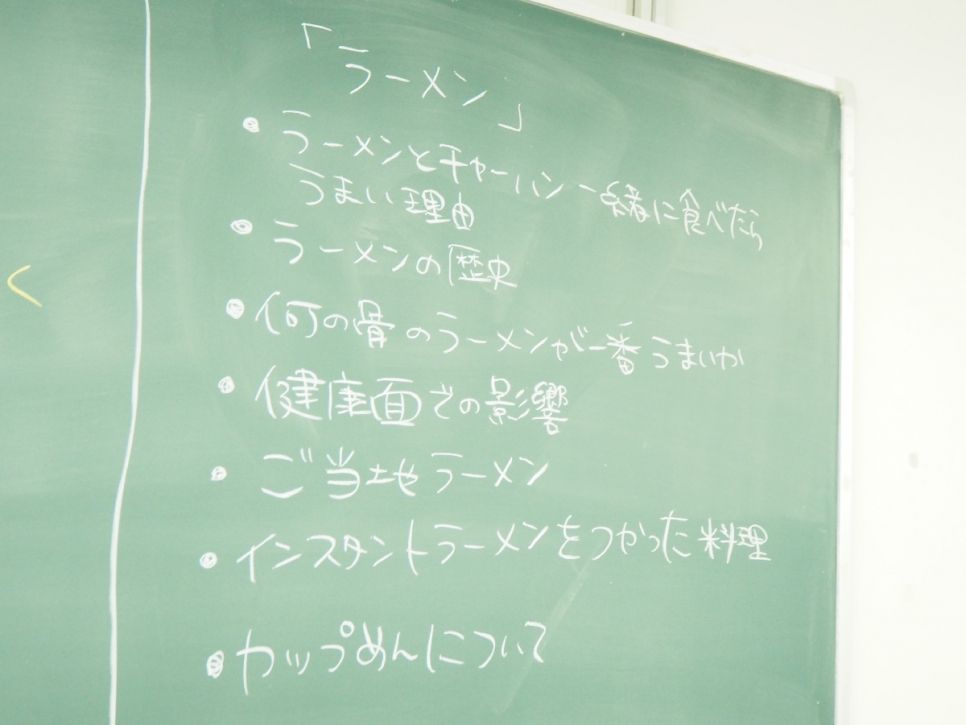 「ラーメン」
• ラーメンとチャーハン一緒に食べたら
うまい理由
• ラーメンの歴史
• 何の骨のラーメンが一番うまいか
• 健康面での影響
• ご当地ラーメン
• インスタントラーメンをつかった料理
• カップめんについて